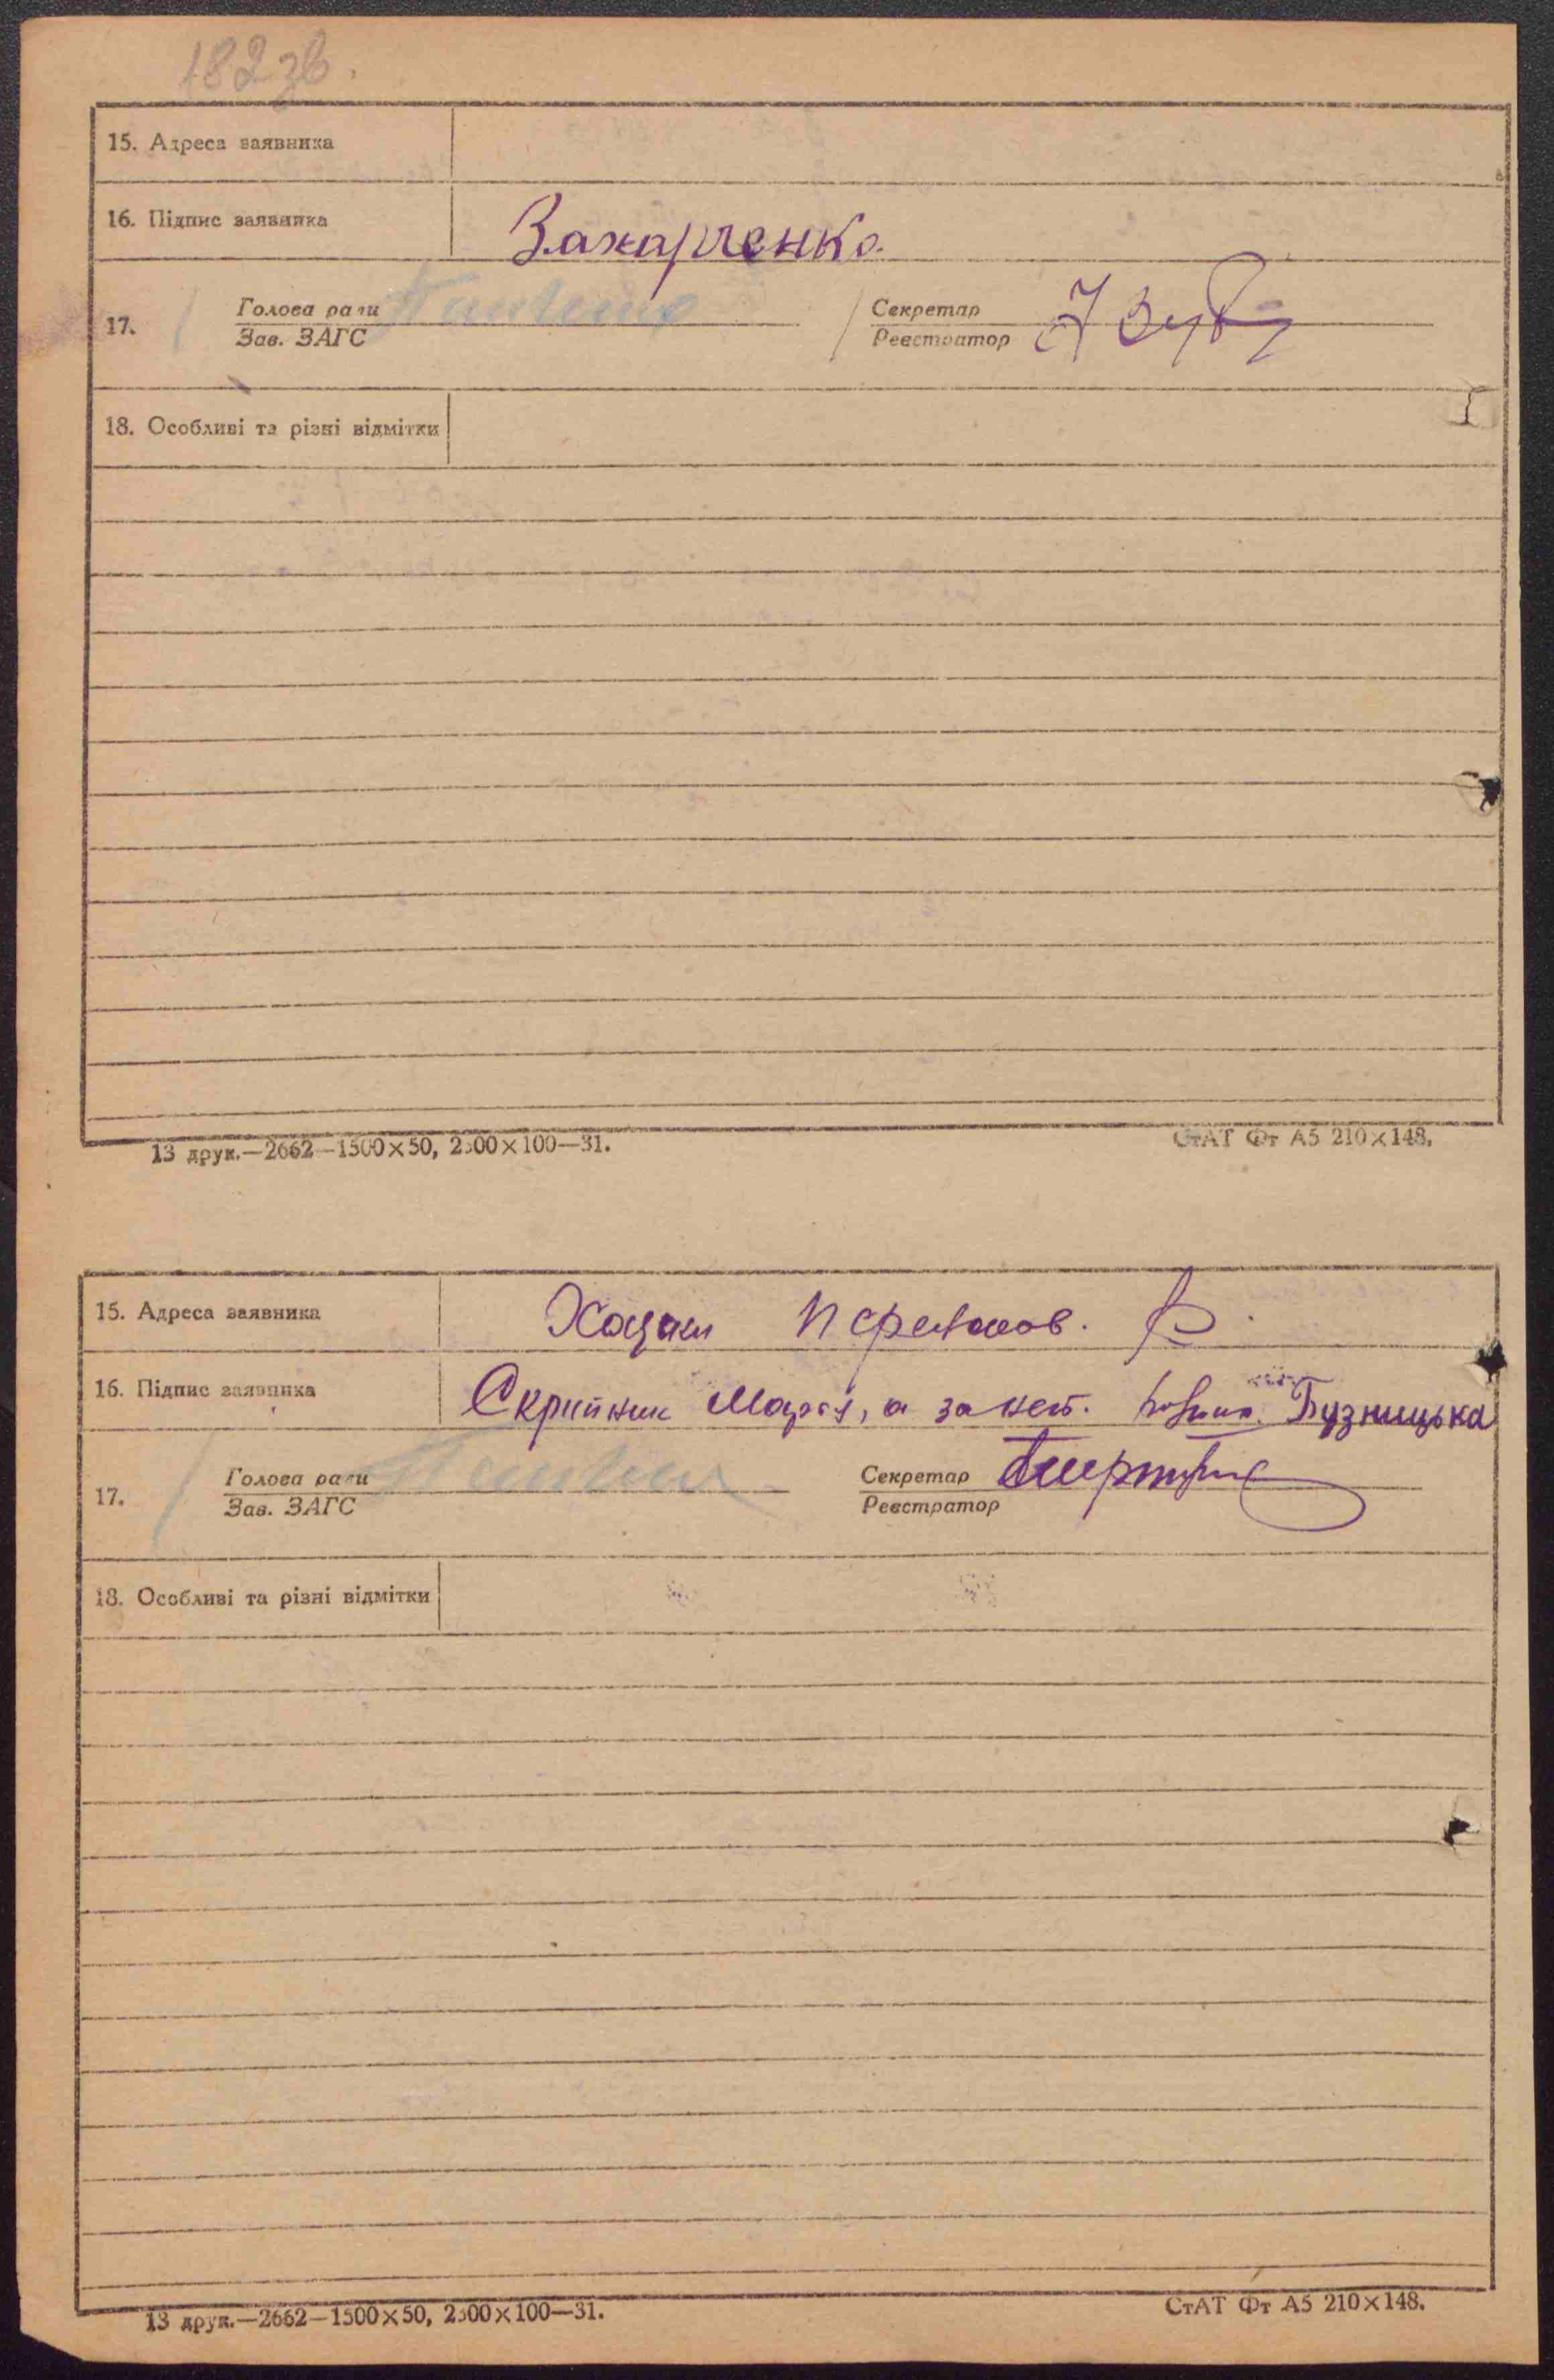 182 зв.
15. Адреса заявника
16. Підпис заявника Захарченко
17. Голова ради Секретар
Зав. ЗАГС Реєстратор
18. Особливі та різні відмітки
13 друк.—2662—1500×50, 2500×100—31. СтАТ Фт А5 210×148.
15. Адреса заявника Хацьки
16. Підпис заявника Скрипник Марія, а за неї Бузницька
17. Голова ради Секретар
Зав. ЗАГС Реєстратор
18. Особливі та різні відмітки
13 друк.—2662—1500×50, 2500×100—31. СтАТ Фт А5 210×148.